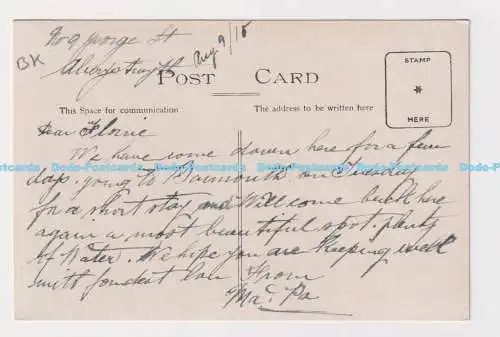 No 9 George St
Aug 9/15
BK
Aberystwyth
POST CARD
STAMP
HERE
This Space for communication
The address to be written here
Dear Florrie
We have come down here for a few
days. going to Barmouth on Tuesday
for a short stay and will come back here
again a most beautiful spot. plenty
of Water. We hope you are keeping well
with fondest love From
Ma & Pa
Dodo-Postcards Dodo-Postcards Dodo-Postcards Dodo-Postcards